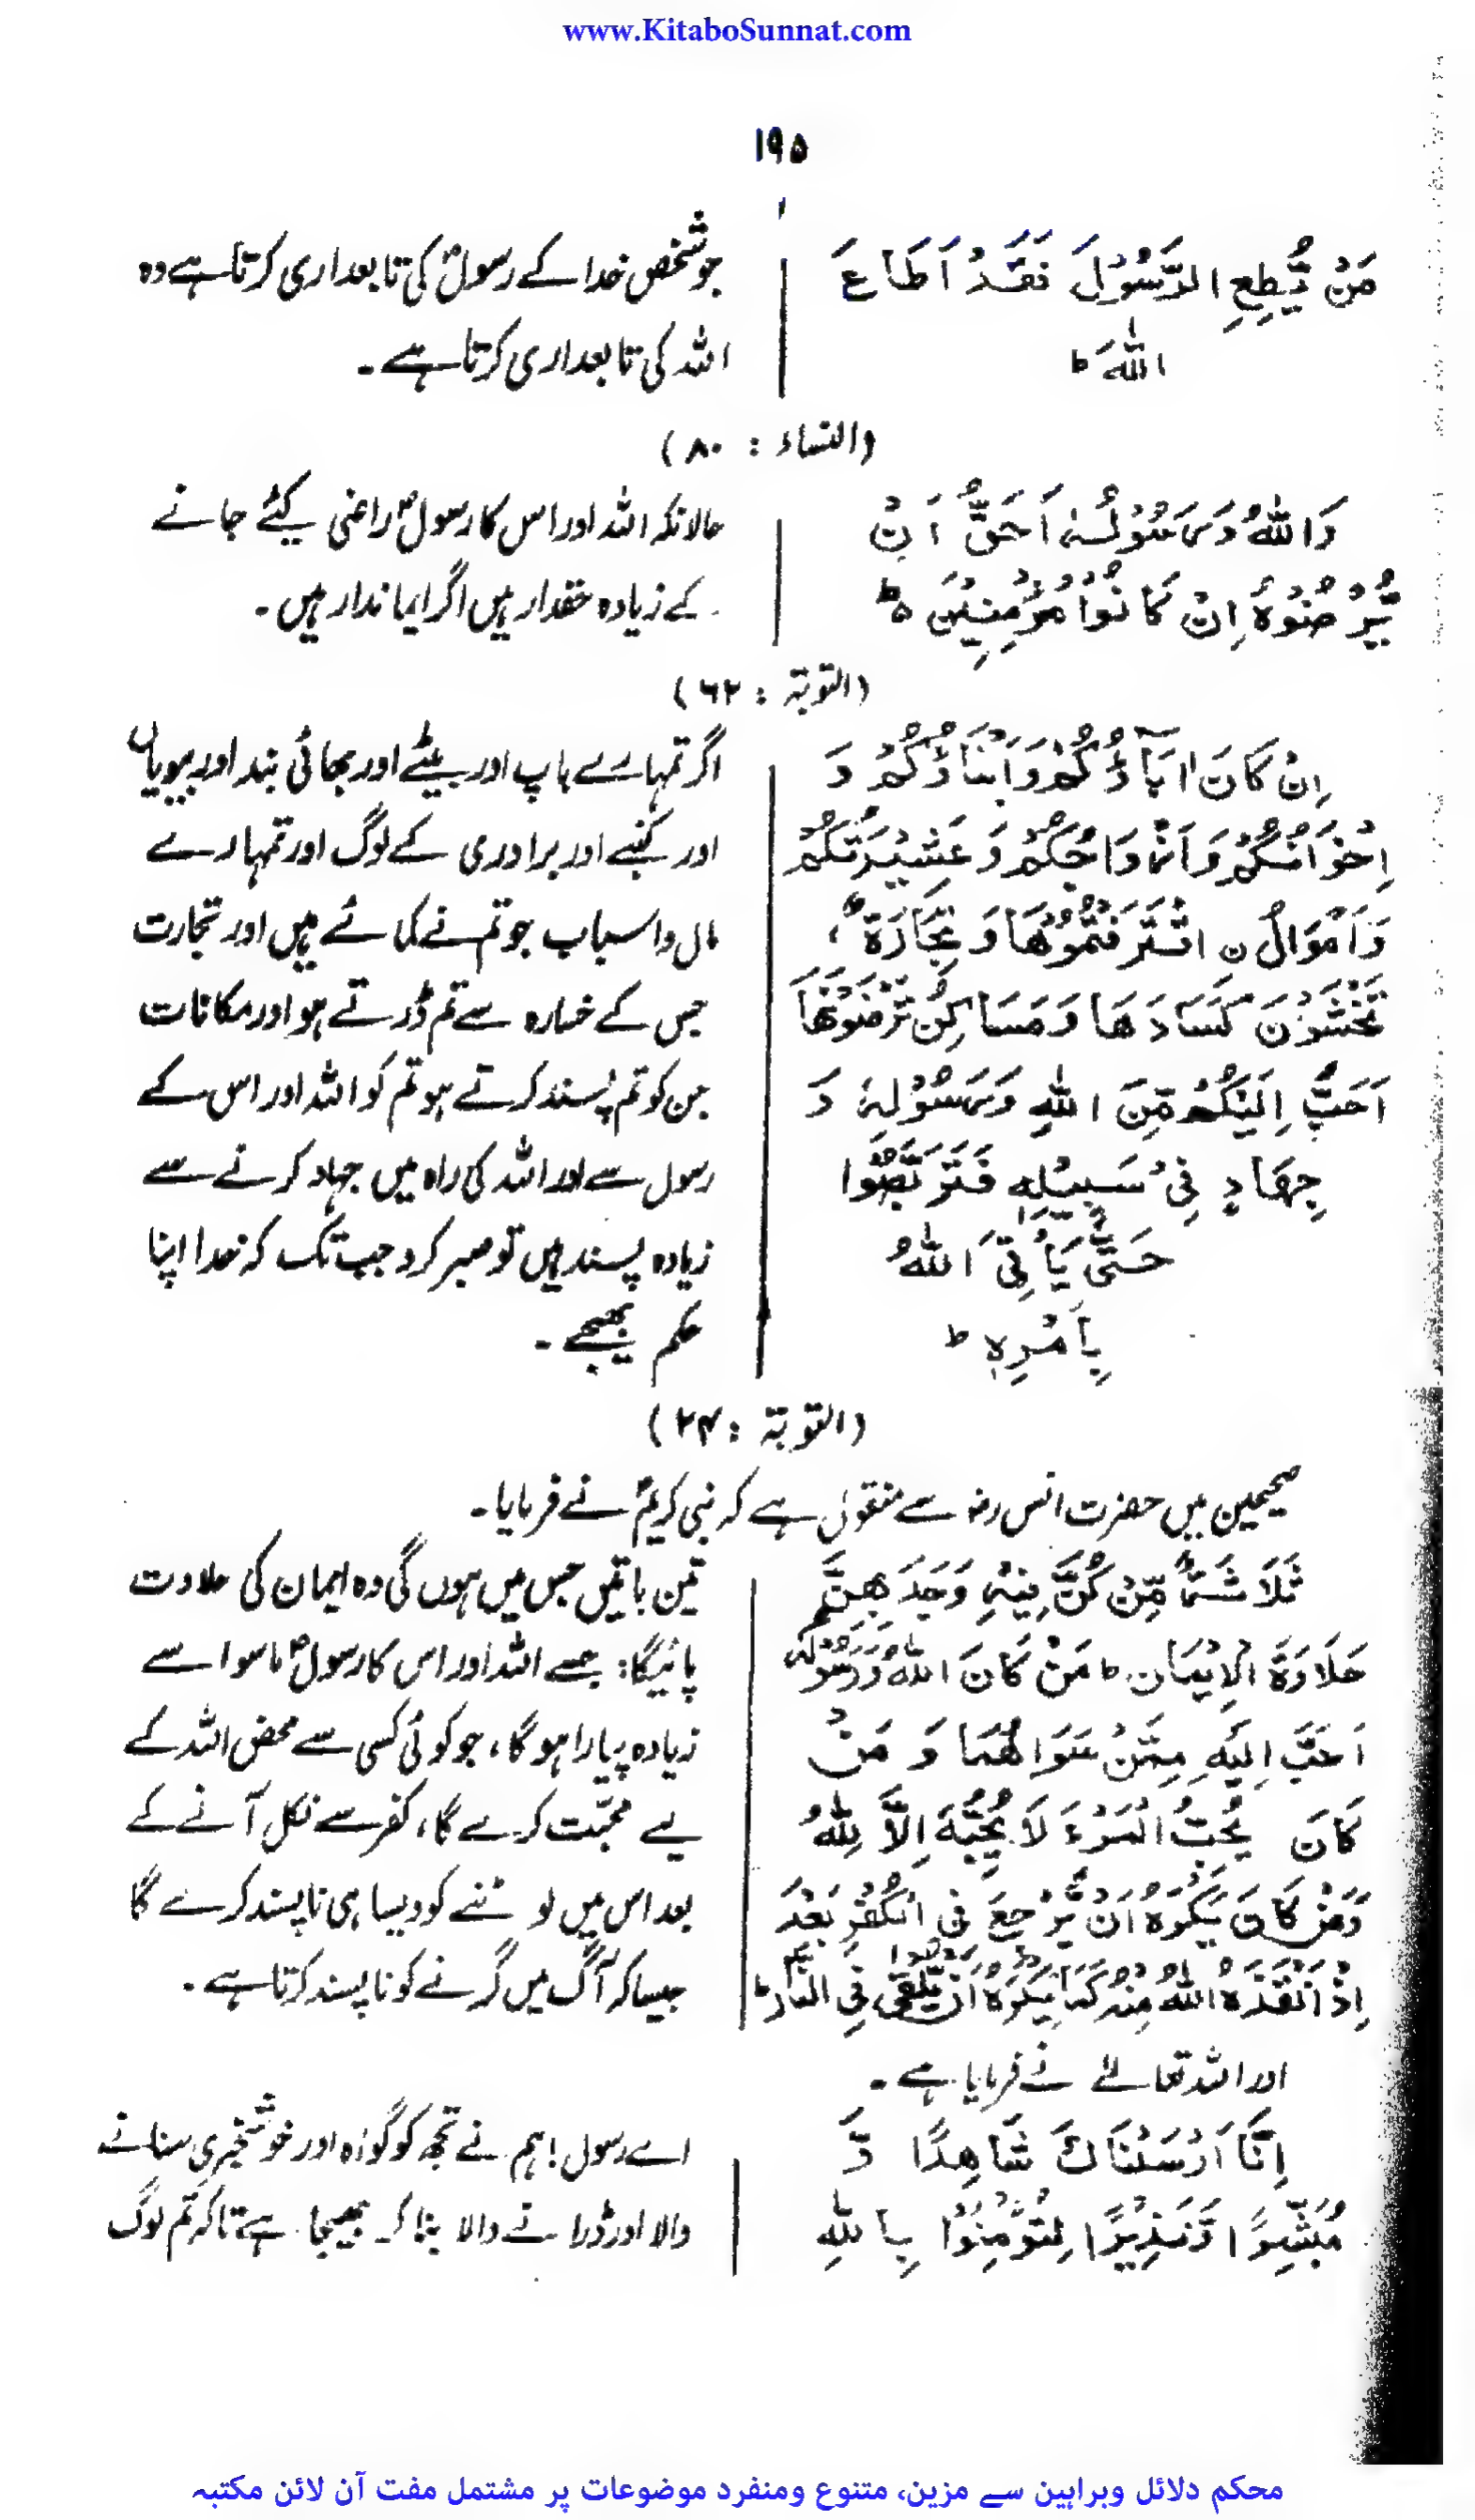 www.KitaboSunnat.com
۱۹۵
مَنْ يُّطِعِ الرَّسُوْلَ فَقَدْ اَطَاعَ
اللّٰهَ ط
جو شخص خدا کے رسولؐ کی تابعداری کرتا ہے وہ
اللہ کی تابعداری کرتا ہے۔
(النساء : ۸۰)
وَاللّٰهُ وَرَسُوْلُهٗ اَحَقُّ اَنْ
يُّرْضُوْهُ اِنْ كَانُوْا مُؤْمِنِيْنَ ط
حالانکہ اللہ اور اس کا رسولؐ راضی کیئے جانے
کے زیادہ حقدار ہیں اگر ایماندار ہیں۔
(التوبۃ : ۶۲)
اِنْ كَانَ اٰبَآؤُكُمْ وَاَبْنَاؤُكُمْ وَ
اِخْوَانُكُمْ وَاَزْوَاجُكُمْ وَعَشِيْرَتُكُمْ
وَاَمْوَالُ نِ اقْتَرَفْتُمُوْهَا وَتِجَارَةٌ
تَخْشَوْنَ كَسَادَهَا وَمَسَاكِنُ تَرْضَوْنَهَا
اَحَبَّ اِلَيْكُمْ مِّنَ اللّٰهِ وَرَسُوْلِهٖ وَ
جِهَادٍ فِیْ سَبِيْلِهٖ فَتَرَبَّصُوْا
حَتّٰى يَأْتِیَ اللّٰهُ
بِاَمْرِهٖ ط
اگر تمہارے باپ اور بیٹے اور بھائی بند اور بیویاں
اور کنبے اور برادری کے لوگ اور تمہارے
مال و اسباب جو تم نے کمائے ہیں اور تجارت
جس کے خسارہ سے تم ڈرتے ہو اور مکانات
جن کو تم پسند کرتے ہو تم کو اللہ اور اس کے
رسول سے اور اللہ کی راہ میں جہاد کرنے سے
زیادہ پسند ہیں تو صبر کرو جب تک کہ خدا اپنا
حکم بھیجے۔
(التوبۃ : ۲۴)
صحیحین میں حضرت انس رضہ سے منقول ہے کہ نبی کریمؐ نے فرمایا۔
ثَلَاثَةٌ مِّنْ كُنَّ فِيْهِ وَجَدَ بِهِنَّ
حَلَاوَةَ الْاِيْمَانِ ط مَنْ كَانَ اللّٰهُ وَرَسُوْلُهٗ
اَحَبَّ اِلَيْهِ مِمَّنْ سَوَاهُمَا وَمَنْ
كَانَ يُحِبُّ الْمَرْءَ لَا يُحِبُّهٗ اِلَّا لِلّٰهِ
وَمَنْ كَانَ يَكْرَهُ اَنْ يَّرْجِعَ فِی الْكُفْرِ بَعْدَ
اِذْ اَنْقَذَهُ اللّٰهُ مِنْهُ كَمَا يَكْرَهُ اَنْ يُّلْقٰى فِی النَّارِ ط
تین باتیں جس میں ہوں گی وہ ایمان کی حلاوت
پائیگا: جسے اللہ اور اس کا رسولؐ ماسوا سے
زیادہ پیارا ہو گا، جو کوئی کسی سے محض اللہ کے
لیے محبّت کرے گا، کفر سے نکل آنے کے
بعد اس میں لوٹنے کو ویسا ہی ناپسند کرے گا
جیسا کہ آگ میں گرنے کو ناپسند کرتا ہے۔
اور اللہ تعالےٰ نے فرمایا ہے۔
اِنَّا اَرْسَلْنَاكَ شَاهِدًا وَّ
مُبَشِّرًا وَّنَذِيْرًا لِّتُؤْمِنُوْا بِاللّٰهِ
اے رسول! ہم نے تجھ کو گواہ اور خوشخبری سنانے
والا اور ڈرانے والا بنا کر بھیجا ہے تاکہ تم لوگ
محکم دلائل وبراہین سے مزین، متنوع ومنفرد موضوعات پر مشتمل مفت آن لائن مکتبہ